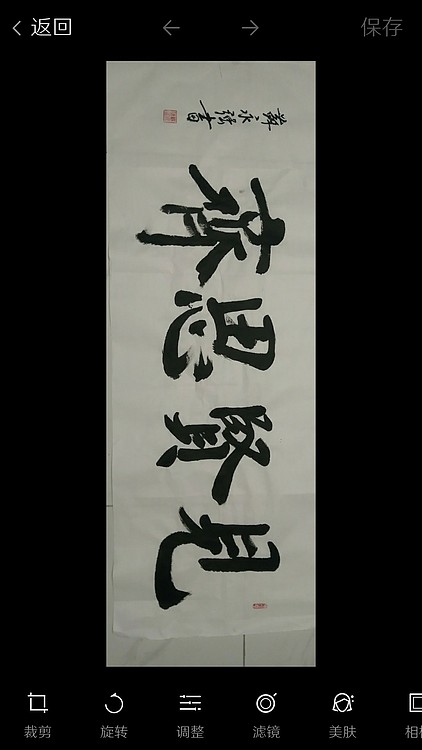 返回 保存
見賢思齊
永强書
裁剪 旋转 调整 滤镜 美肤 相